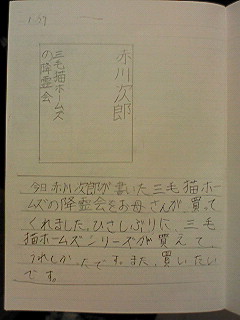 1.29
赤川次郎
三毛猫ホームズ
の降霊会
今日赤川次郎が書いた三毛猫ホー
ムズの降霊会をお母さんが買って
くれました。ひさしぶりに、三毛
猫ホームズシリーズが買えて、
うれしかったです。また、買いたい
です。